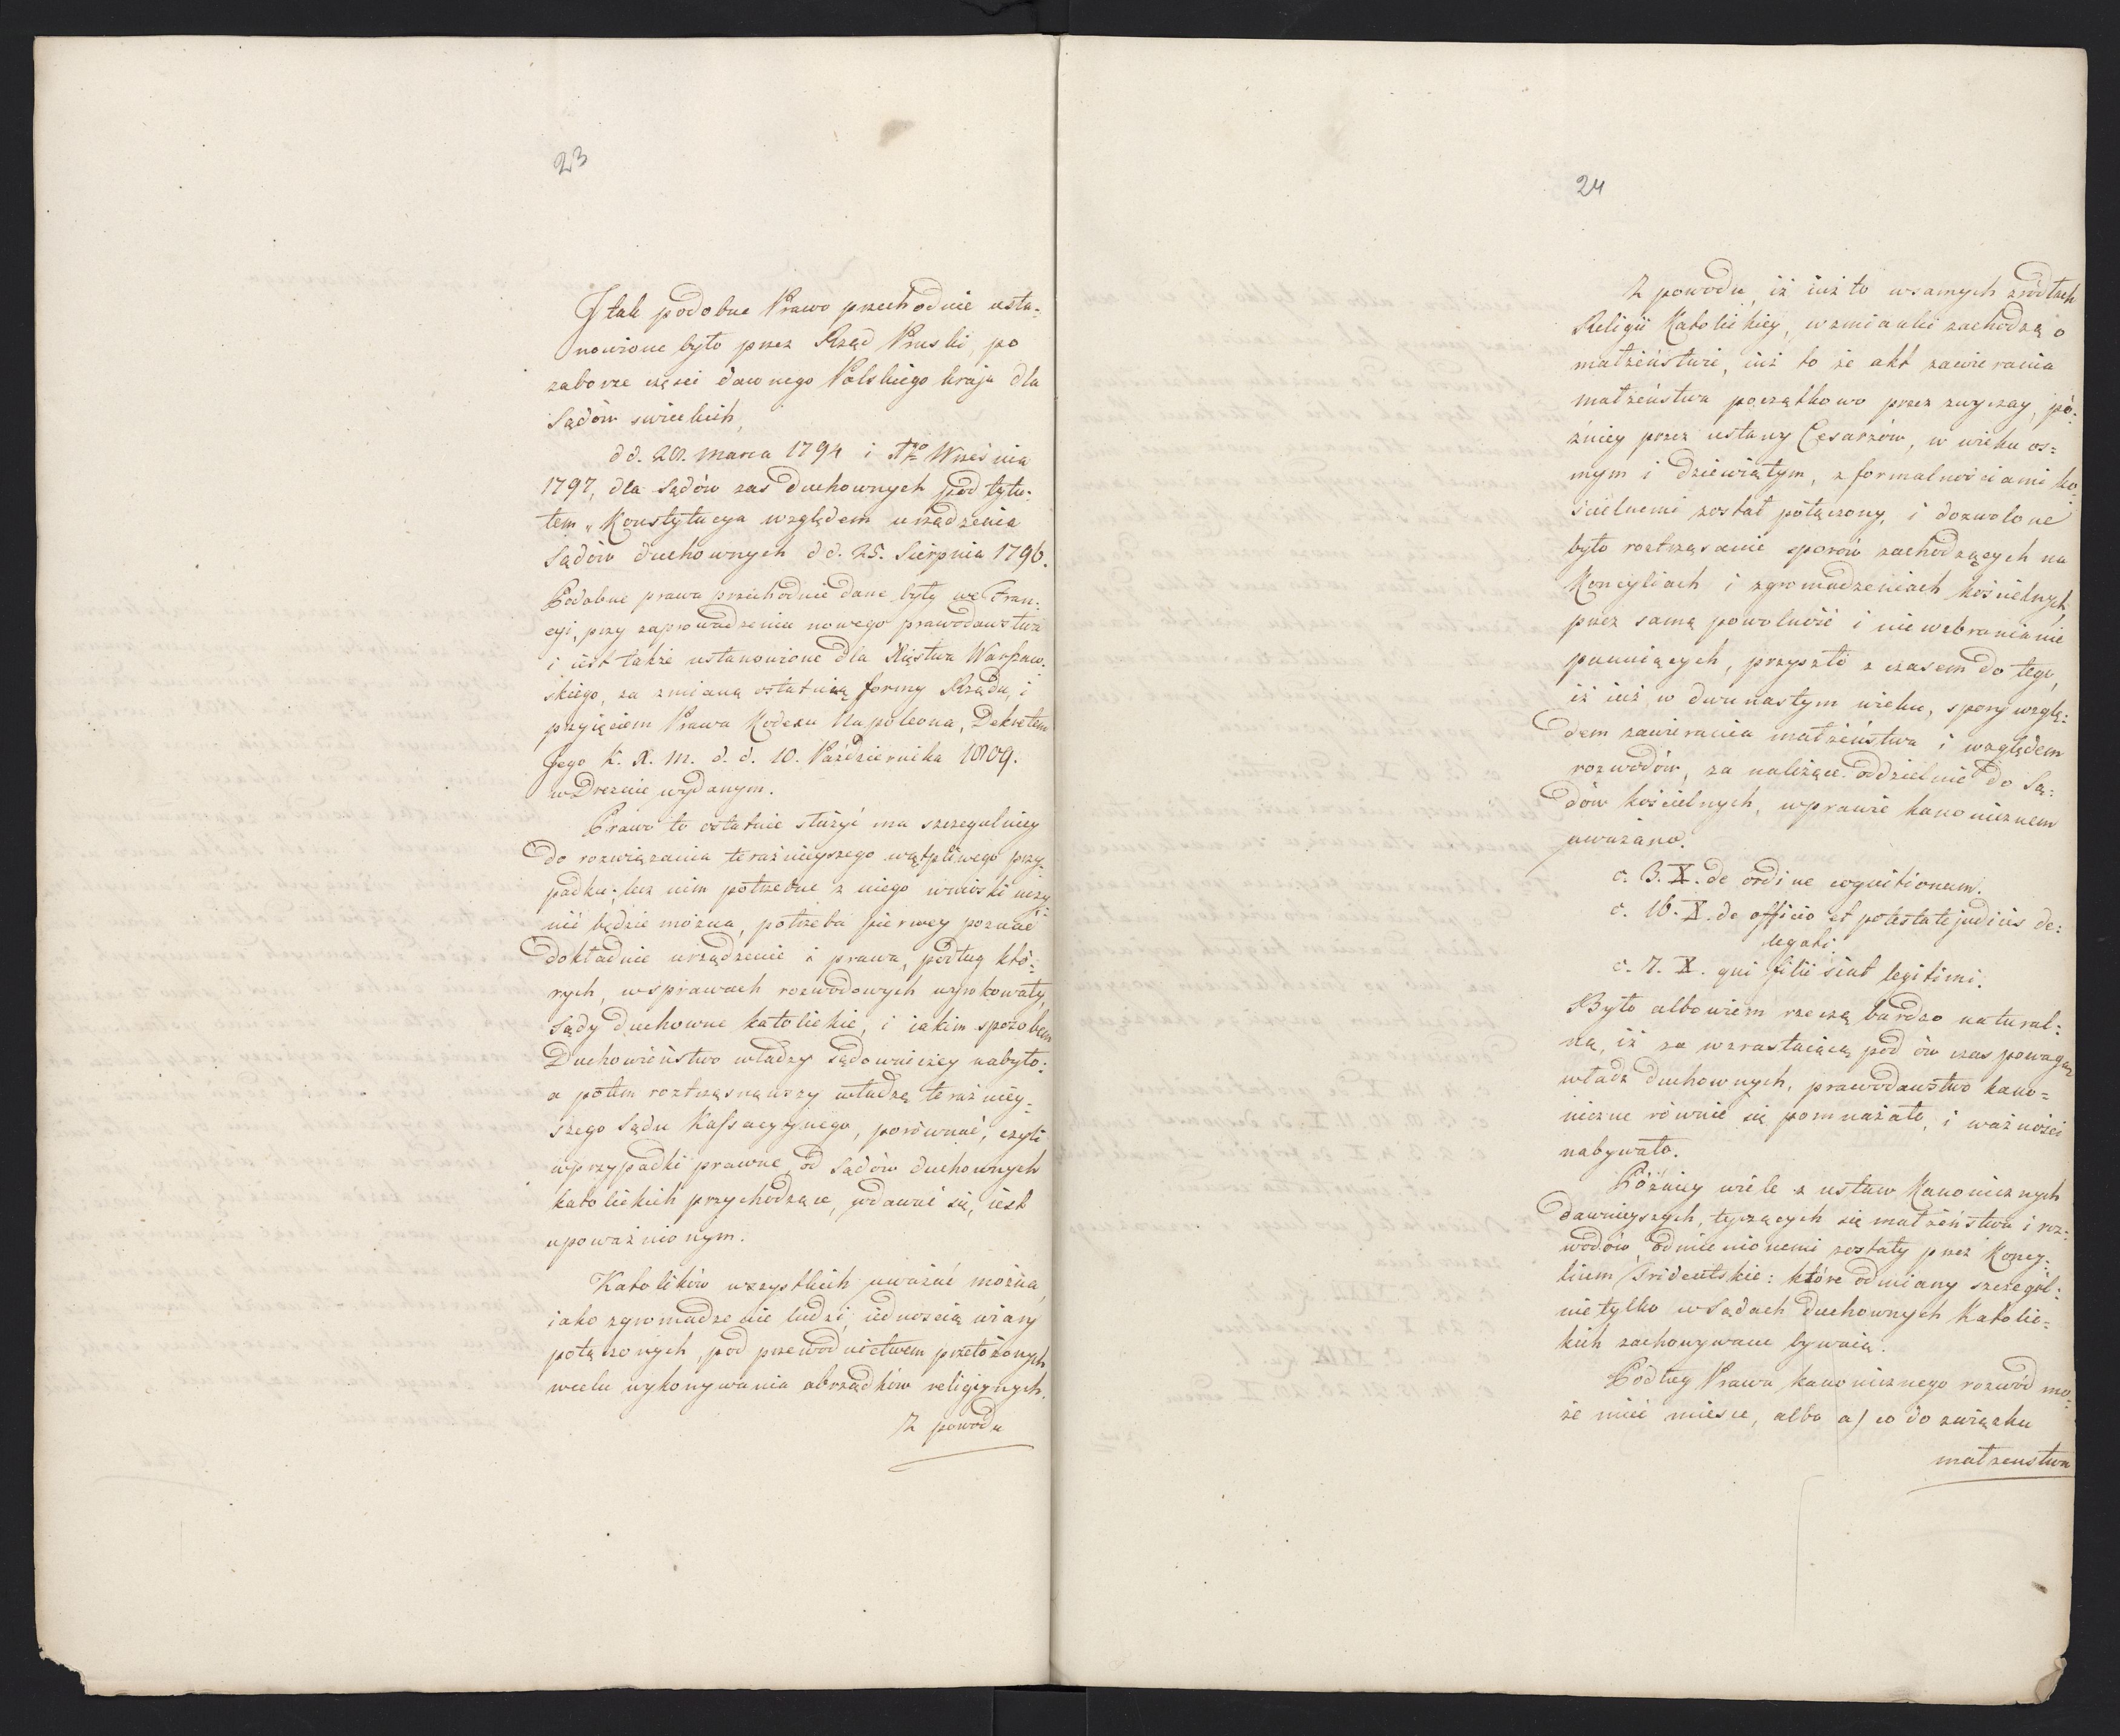 23
I tak podobne Prawo przechodnie usta-
nowione było przez Rząd Pruski, po
zaborze części dawnego Polskiego kraju dla
Sądów swieckich,
dd. 28. Marca 1794 i Września
1797, dla Sądów zaś duchownych pod tytu-
łem „Konstytucya względem urządzenia
Sądów duchownych dd. 25. Sierpnia 1796.
Podobne prawa przechodnie dane były we Fran-
cyi, przy zaprowadzeniu nowego prawodawstwa
i iest także ustanowione dla Xięstwa Warszaw-
skiego, za zmianą ostatnią formy Rządu, i
przyięciem Prawa Kodexu Napoleona, Dekretem
Jego K. X. M. d. d. 10. Października 1809.
w Dreznie wydanym.
Prawo to ostatnie służyć ma szczegulniey
do rozwiązania teraźnieyszego wątpliwego przy-
padku; lecz nim potrzebne z niego wnioski uczy-
nić będzie można, potrzeba pierwey poznać
dokładnie urządzenie i prawa, podług któ-
rych, w sprawach rozwodowych wyrokowały
Sądy duchowne katolickie, i iakim sposobem
Duchowieństwo władzy sądowniczey nabyło:
a potem roztrząsnąwszy władzę teraźniey-
szego Sądu Kassacyynego, porównać, czyli
w przypadki prawne od Sądów duchownych
katolickich przychodzące, wdawać się, iest
upoważnionym.
Katolików wszystkich uważać można,
iako zgromadzenie ludzi, iednością wiary
połączonych, pod przewodnictwem przełożonych
w celu wykonywania obrządków religiynych.
Z powodu
24
Z powodu, iż iuż to w samych źrodłach
Religii Katolickiey, wzmianki zachodzą o
małżeństwie, iuż to że akt zawierania
małżeństwa początkowo przez zwyczay, pó-
źniey przez ustawy Cesarzów, w wieku os-
mym i dziewiątym, z formalnościami ko-
ścielnemi został połączony, i dozwolone
było roztrząsanie sporów zachodzących na
Koncyliach i zgromadzeniach kościelnych,
przez samą powolność i niewzbranianie
panuiących, przyszło z czasem do tego,
iż iuż w dwunastym wieku, spory wzglę-
dem zawierania małżeństwa i względem
rozwodów, za należące oddzielnie do Są-
dów kościelnych, w prawie kanonicznem
uważano.
c. 3. X. de ordine cognitionum.
c. 16. X. de officio et potestate judicis de-
legati
c. 7. X. qui filii sint legitimi.
Było albowiem rzeczą bardzo natural-
ną, iż za wzrastaiącą pod ów czas powagą
władz duchownych, prawodawstwo kano-
niczne równie się pomnażało, i ważności
nabywało.
Późniey wiele z ustaw Kanonicznych
dawnieyszych, tyczących się małżeństwa i roz-
wodów, odmienionemi zostały przez Koncy-
lium Tridentskie: które odmiany szczegól-
nie tylko w Sądach duchownych Katolic-
kich zachowywane bywaią.
Podług Prawa kanonicznego rozwód mo-
że mieć miesce, albo a) co do związku
małżenstwa